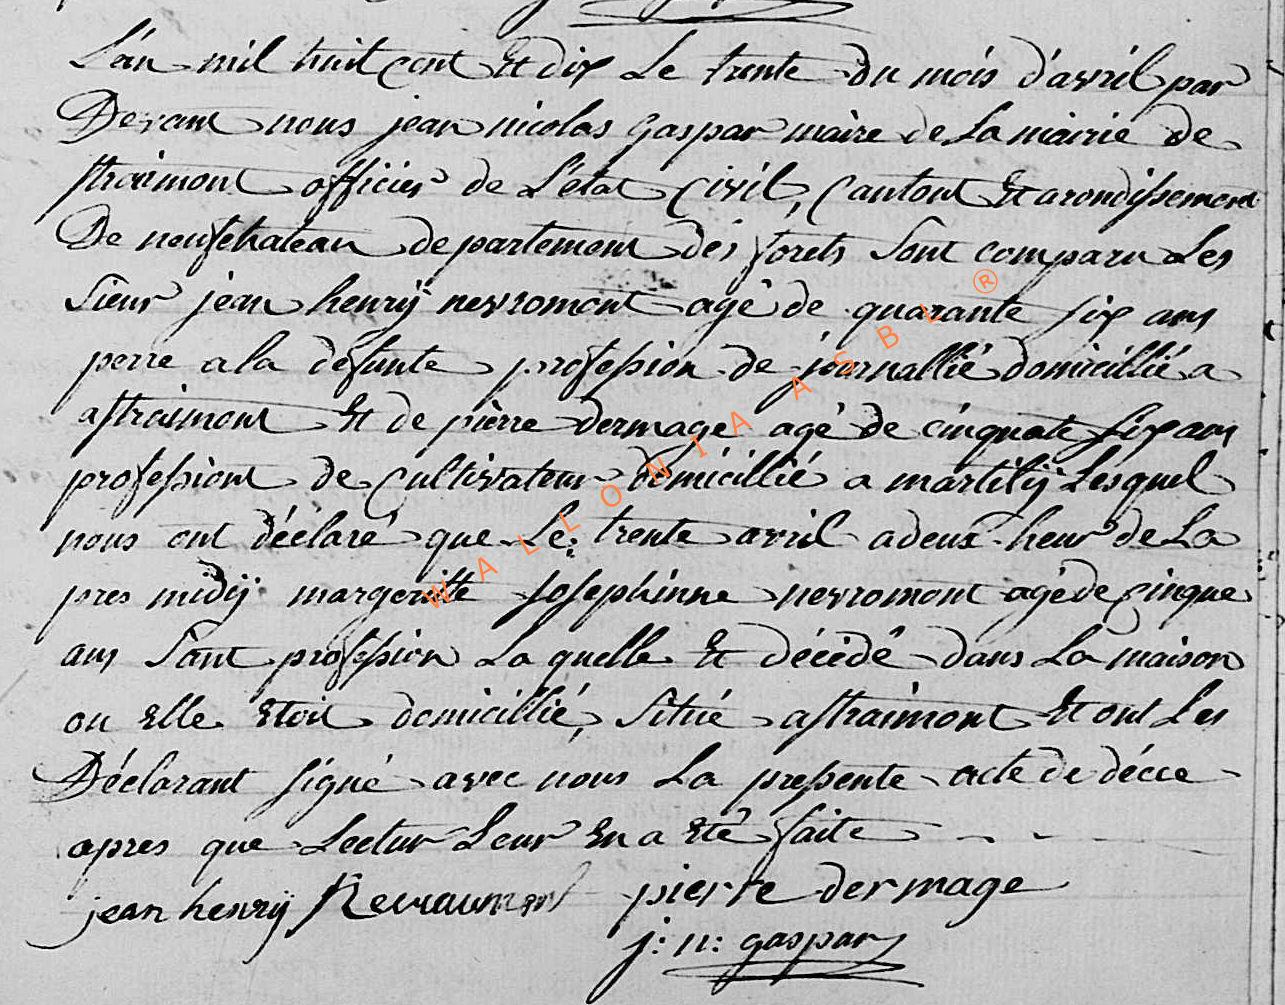 L'an mil huit cent Et dix Le trente du mois d'avril par
Devant nous jean nicolas gaspar maire de La mairie de
straimont officier de L'état Civil, Cantont Et arondissement
De neufchateau departement des forets Sont comparu Les
Sieur jean henrij nevromont agé de quarante six ans
perre a la defunte profession de journallié domicillié a
astraimont Et de pièrre dermage agé de cinquate six ans
professiont de Cultivateur domicillié a martilij Lesquel
nous ont déclaré que Le trente avril a deux heur de La
pres midij margeritte Josephinne nevromont agé de Cinque
ans Sant profession La quelle Et décédé dans La maison
ou Elle Etoit domicillié, Situé astraimont Et ont Les
Déclarant signé avec nous La pressente acte de décce
apres que Lectur Leur En a Eté faite
jean henrij Nevraumont pierre dermage
j: n: gaspar
WALLONIA ASBL ®